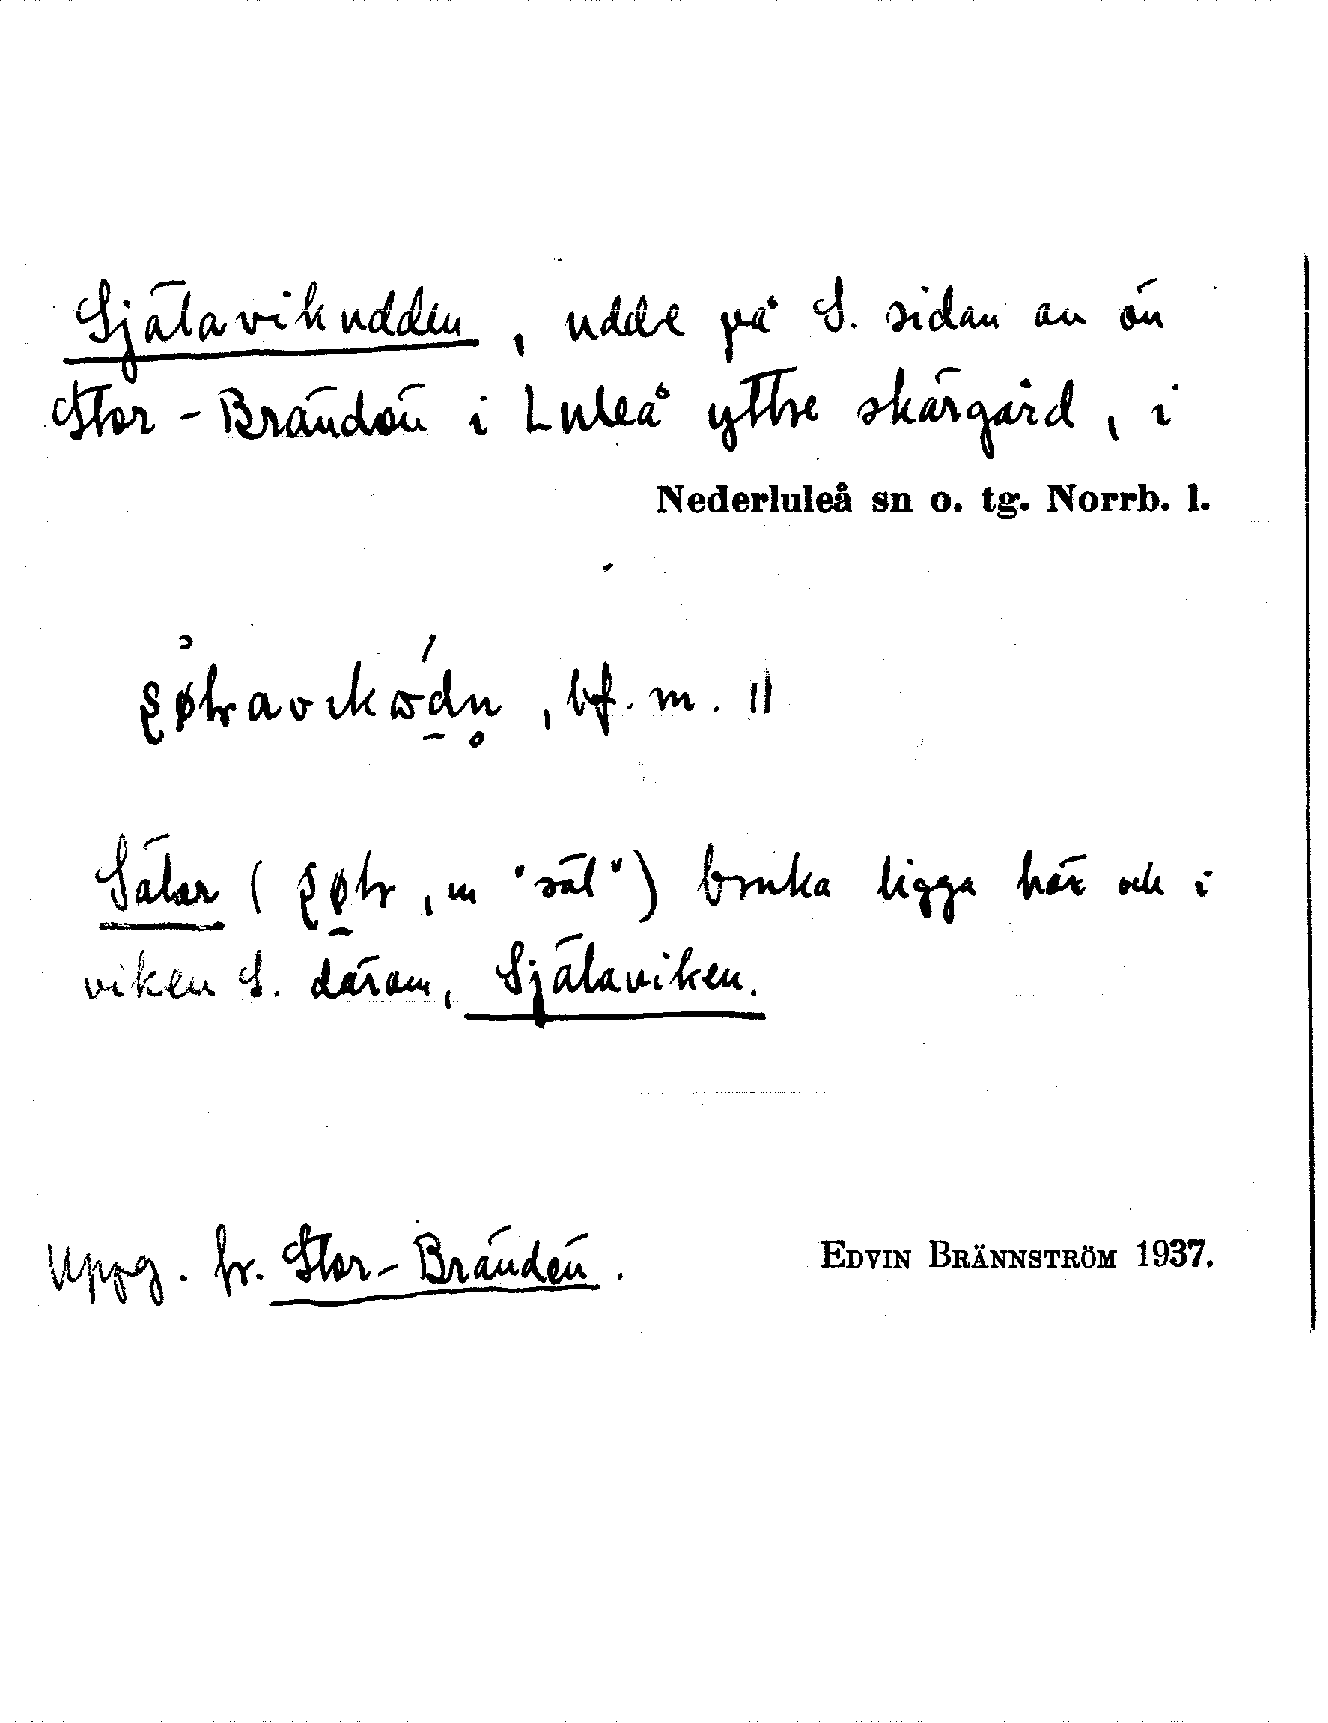 Själavikudden, udde på S. sidan av ön
Stor-Brändön i Luleå yttre skärgård, i
Nederluleå sn o. tg. Norrb. l.
, bf. m. ||
Sälar ( , m "säl") bruka ligga här och i
viken S. därom, Själaviken.
Uppg. fr. Stor-Brändön.
EDVIN BRÄNNSTRÖM 1937.